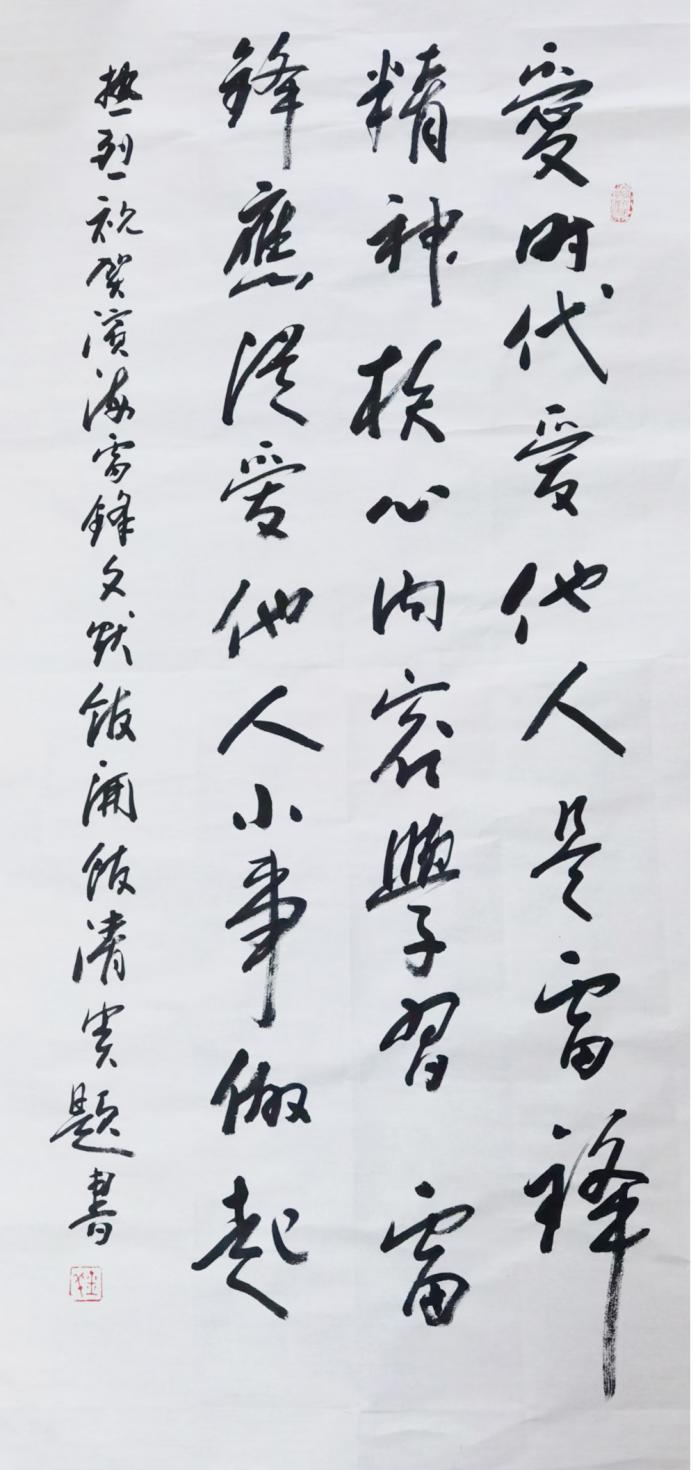 愛时代爱他人是雷锋
精神核心内容學习雷
鋒應從爱他人小事做起
热烈祝贺滨海雷锋文献馆开馆清实题書